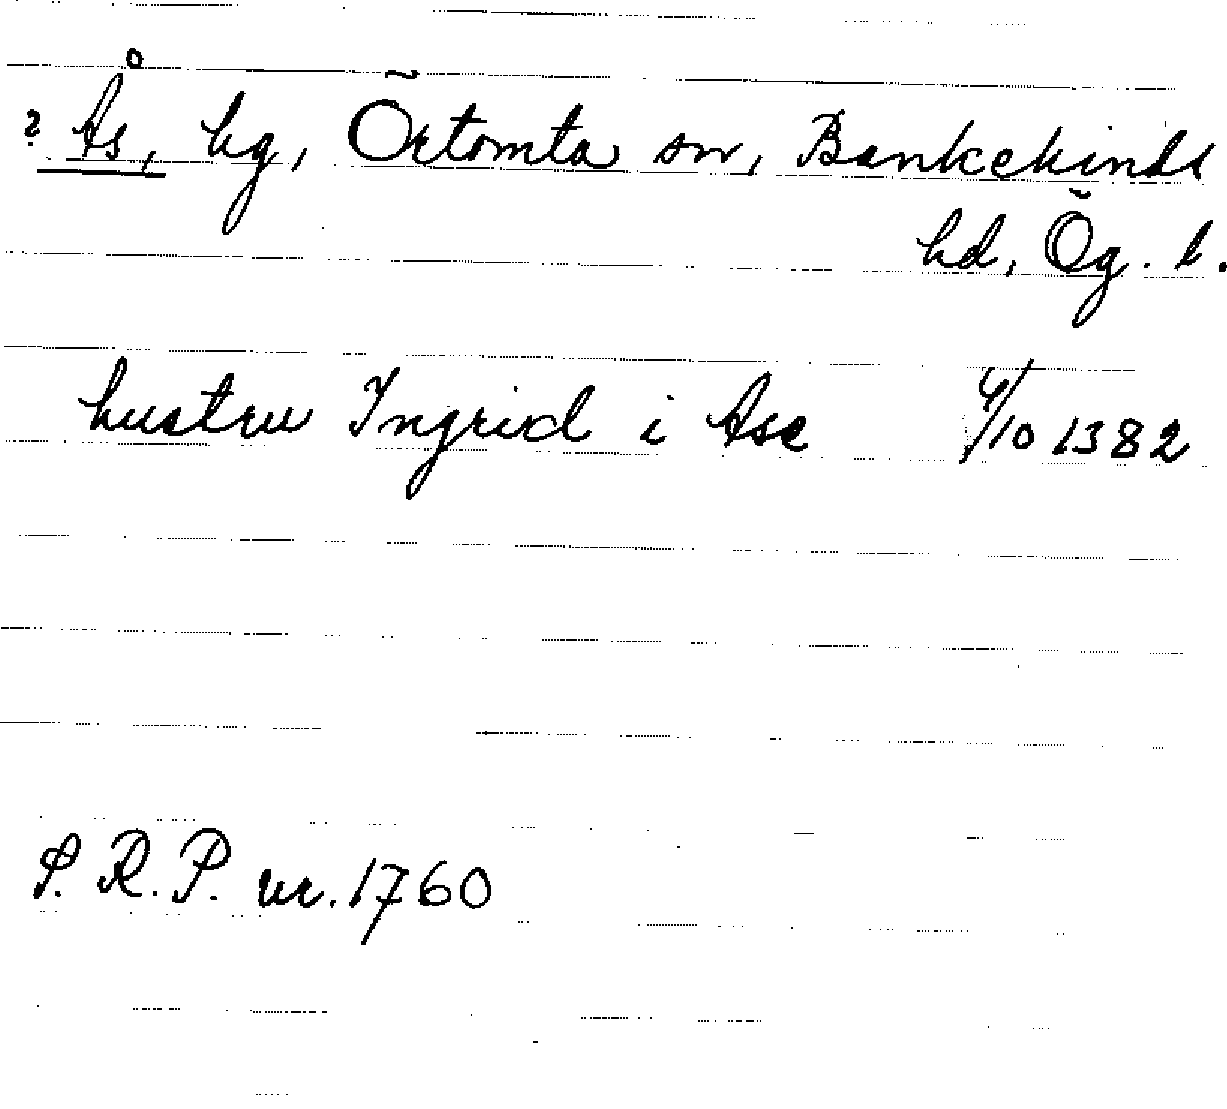 ? Ås, hg, Örtomta sn, Bankekinds
hd, Ög. l.
hustru Ingrid i Ase 4/10 1382
S. R. P. nr. 1760